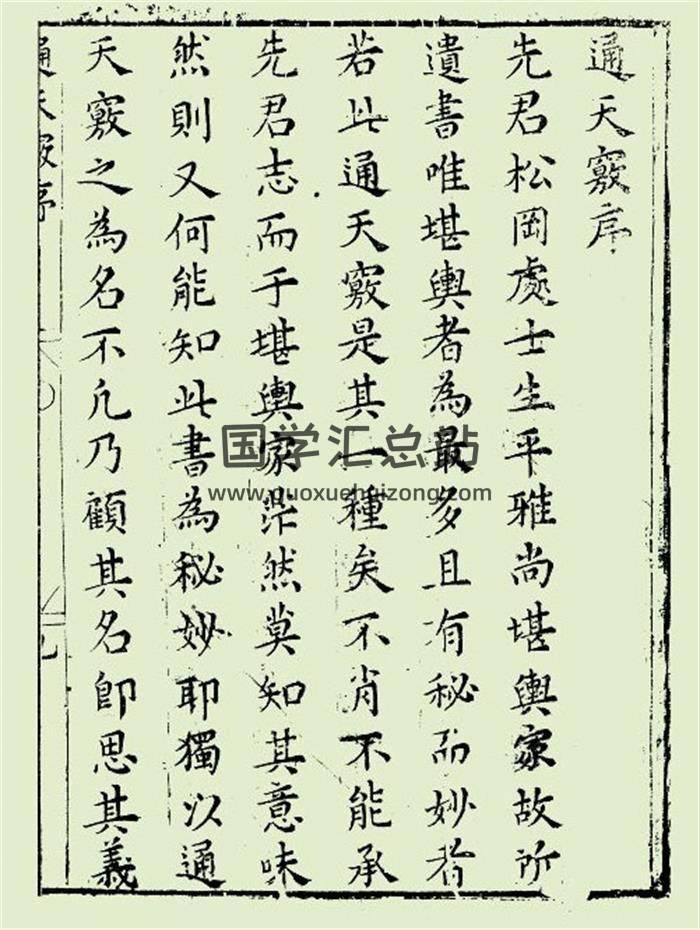 通天竅序
先君松岡處士生平雅尚堪輿家故所
遺書唯堪輿者為最多且有秘而妙者
若此通天竅是其一種矣不肖不能承
先君志而于堪輿家茫然莫知其意味
然則又何能知此書為秘妙耶獨以通
天竅之為名不凡乃顧其名即思其義
通天竅序
国学汇总站
www.guoxuehuizong.com